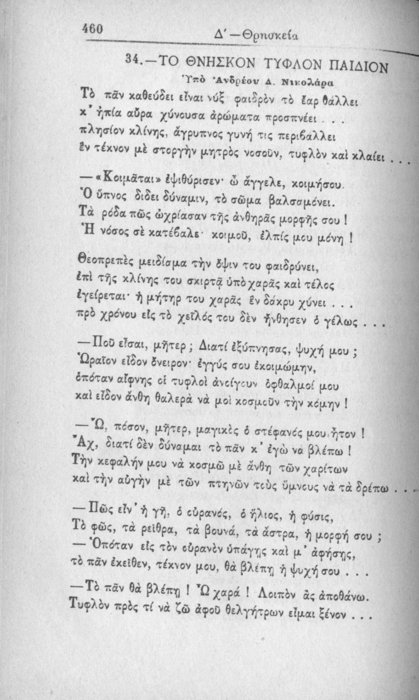 460
Δ' —Θρησκεία
34.—ΤΟ ΘΝΗΣΚΟΝ ΤΥΦΛΟΝ ΠΑΙΔΙΟΝ
Ὑπὸ Ἀνδρέου Δ. Νικολάρα
Τὸ πᾶν καθεύδει εἶναι νὺξ φαιδρὸν τὸ ἔαρ θάλλει
κ' ἠπία αὔρα χύνουσα ἀρώματα προσπνέει . . .
πλησίον κλίνης, ἄγρυπνος γυνή τις περιβάλλει
ἓν τέκνον μὲ στοργὴν μητρὸς νοσοῦν, τυφλὸν καὶ κλαίει . . .
—«Κοιμᾶται» ἐψιθύρισεν· ὦ ἄγγελε, κοιμήσου.
Ὁ ὕπνος δίδει δύναμιν, τὸ σῶμα βαλσαμόνει.
Τὰ ῥόδα πῶς ὠχρίασαν τῆς ἀνθηρᾶς μορφῆς σου !
Ἡ νόσος σὲ κατέβαλε· κοιμοῦ, ἐλπίς μου μόνη !
Θεοπρεπὲς μειδίαμα τὴν ὄψιν του φαιδρύνει,
ἐπὶ τῆς κλίνης του σκιρτᾷ ὑπὸ χαρᾶς καὶ τέλος
ἐγείρεται· ἡ μήτηρ του χαρᾶς ἓν δάκρυ χύνει . . .
πρὸ χρόνου εἰς τὸ χεῖλός του δὲν ἤνθησεν ὁ γέλως . . .
—Ποῦ εἶσαι, μῆτερ ; Διατί ἐξύπνησας, ψυχή μου ;
Ὡραῖον εἶδον ὄνειρον· ἐγγύς σου ἐκοιμώμην,
ὁπόταν αἴφνης οἱ τυφλοὶ ἀνοίγουν ὀφθαλμοί μου
καὶ εἶδον ἄνθη θαλερὰ νὰ μοὶ κοσμοῦν τὴν κόμην !
—Ὤ, πόσον, μῆτερ, μαγικὸς ὁ στέφανός μου ἦτον !
Ἄχ, διατί δὲν δύναμαι τὸ πᾶν κ' ἐγὼ νὰ βλέπω !
Τὴν κεφαλήν μου νὰ κοσμῶ μὲ ἄνθη τῶν χαρίτων
καὶ τὴν αὐγὴν μὲ τῶν πτηνῶν τοὺς ὕμνους νὰ τὰ δρέπω . . .
—Πῶς εἶν' ἡ γῆ, ὁ οὐρανός, ὁ ἥλιος, ἡ φύσις,
Τὸ φῶς, τὰ ῥεῖθρα, τὰ βουνά, τὰ ἄστρα, ἡ μορφή σου ;
—Ὁπόταν εἰς τὸν οὐρανὸν ὑπάγῃς καὶ μ' ἀφήσῃς,
τὸ πᾶν ἐκεῖθεν, τέκνον μου, θὰ βλέπῃ ἡ ψυχή σου . . .
—Τὸ πᾶν θὰ βλέπῃ ! Ὢ χαρά ! Λοιπὸν ἂς ἀποθάνω.
Τυφλὸν πρὸς τί νὰ ζῶ ἀφοῦ θελγήτρων εἶμαι ξένον . . .